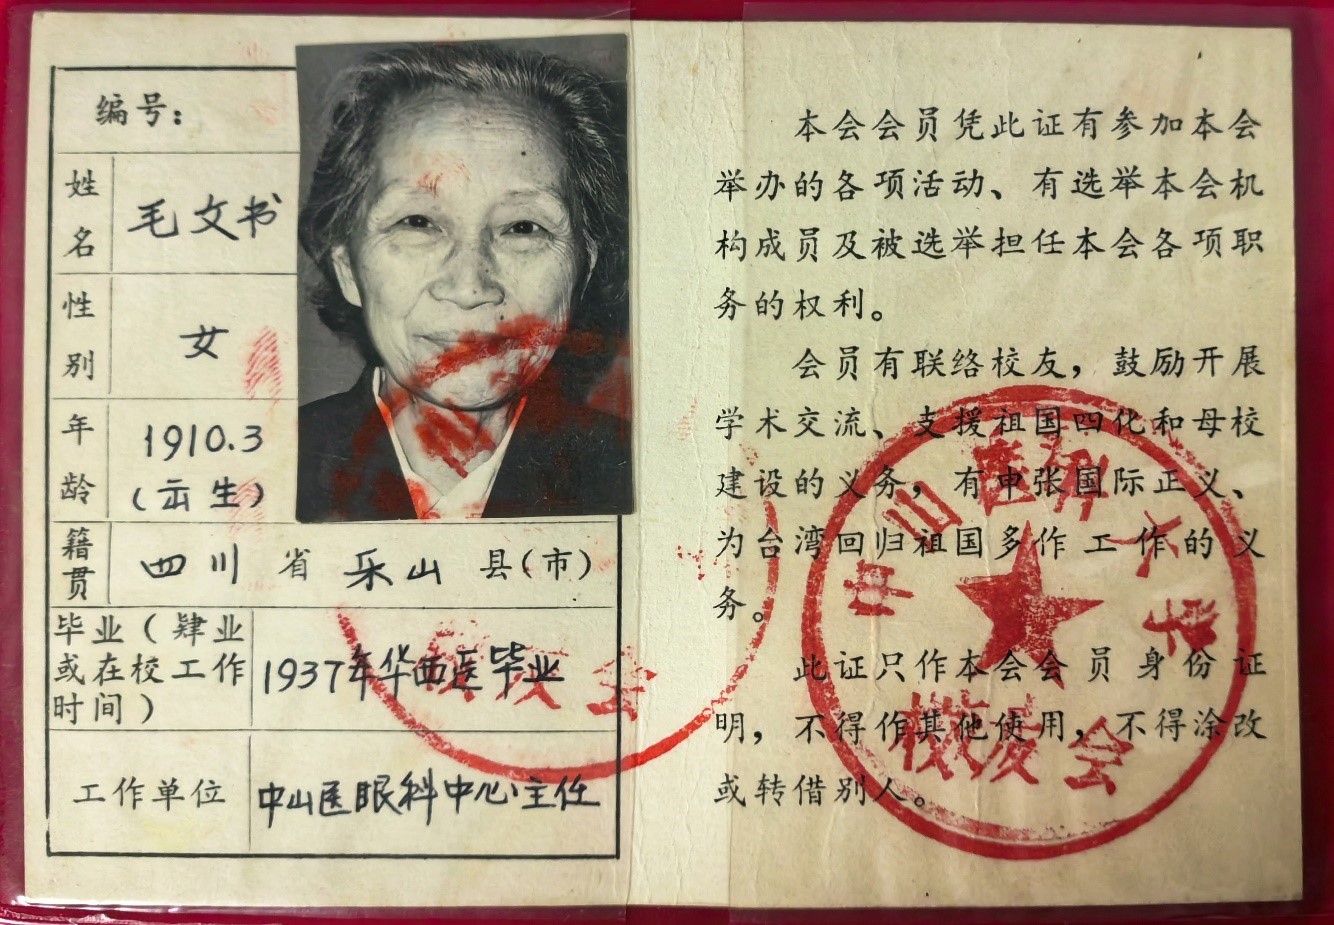 编号：
姓名 毛文书
性别 女
年龄 1910.3
（云生）
籍贯 四川省乐山县（市）
毕业（肄业
或在校工作
时间）
1937年华西医毕业
工作单位 中山医眼科中心主任
校友会
本会会员凭此证有参加本会
举办的各项活动、有选举本会机
构成员及被选举担任本会各项职
务的权利。
会员有联络校友，鼓励开展
学术交流、支援祖国四化和母校
建设的义务，有申张国际正义、
为台湾回归祖国多作工作的义
务。
此证只作本会会员身份证
明，不得作其他使用，不得涂改
或转借别人。
中山医科大学
校友会